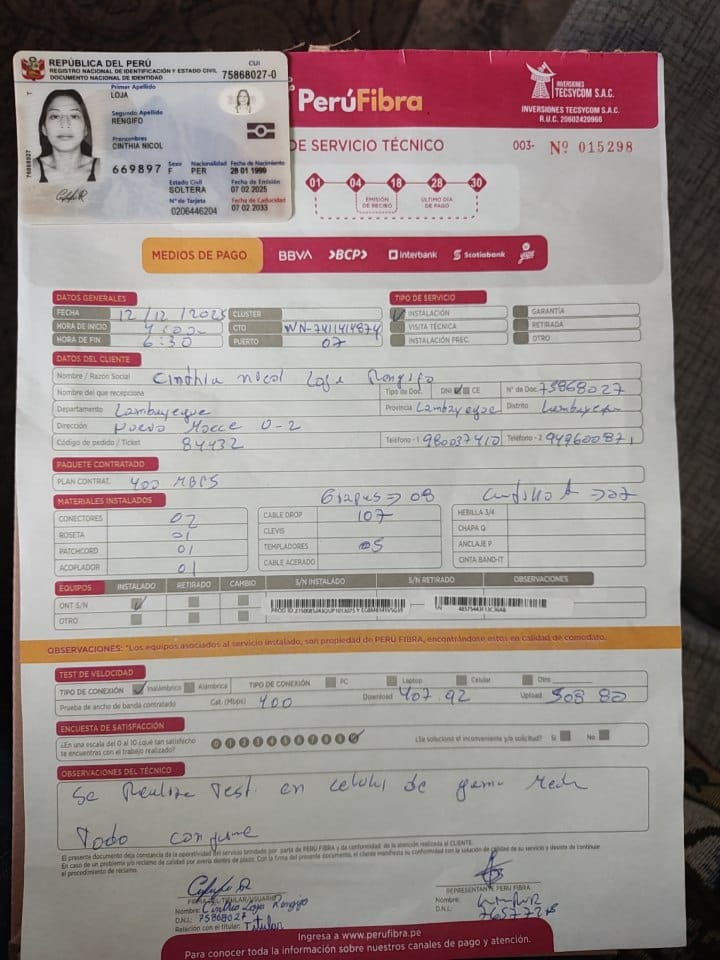 REPÚBLICA DEL PERÚ
REGISTRO NACIONAL DE IDENTIFICACIÓN Y ESTADO CIVIL
DOCUMENTO NACIONAL DE IDENTIDAD
CUI
75868027-0
Primer Apellido
LOJA
Segundo Apellido
RENGIFO
Prenombres
CINTHIA NICOL
669897
Sexo
F
Nacionalidad
PER
Fecha de Nacimiento
28 01 1999
Estado Civil
SOLTERA
Fecha de Emisión
07 02 2025
N° de Tarjeta
0206446204
Fecha de Caducidad
07 02 2033
75868027
PerúFibra
INVERSIONES
TECSYCOM S.A.C.
INVERSIONES TECSYCOM S.A.C.
R.U.C. 20602420966
DE SERVICIO TÉCNICO
003- Nº 015298
01 04 18 28 30
EMISIÓN DE RECIBO
ÚLTIMO DÍA DE PAGO
MEDIOS DE PAGO BBVA BCP Interbank Scotiabank yape
DATOS GENERALES
TIPO DE SERVICIO
FECHA 12/12/2025 CLUSTER
INSTALACIÓN GARANTÍA
HORA DE INICIO CTO
VISITA TÉCNICA RETIRADA
HORA DE FIN 6:30 PUERTO 07
INSTALACIÓN FREC. OTRO
DATOS DEL CLIENTE
Nombre / Razón Social Cinthia nicol Loja Rengifo
Nombre del que recepciona Tipo de Doc. DNI CE N° de Doc. 75868027
Departamento Lambayeque Provincia Lambayeque Distrito Lambayeque
Dirección Nuevo Mocce O-2
Código de pedido / Ticket 84432 Teléfono - 1 980037410 Teléfono - 2 949600871
PAQUETE CONTRATADO
PLAN CONTRAT. 400 MBPS
MATERIALES INSTALADOS Grapas => 08
CONECTORES 02 CABLE DROP 107 HEBILLA 3/4
ROSETA 01 CLEVIS CHAPA Q
PATCHCORD 01 TEMPLADORES 05 ANCLAJE P.
ACOPLADOR 01 CABLE ACERADO CINTA BAND-IT
EQUIPOS INSTALADO RETIRADO CAMBIO S/N INSTALADO S/N RETIRADO OBSERVACIONES
ONT S/N
OTRO
OBSERVACIONES: *Los equipos asociados al servicio instalado, son propiedad de PERÚ FIBRA, encontrándose estos en calidad de comodato.
TEST DE VELOCIDAD
TIPO DE CONEXIÓN Inalámbrico Alámbrica TIPO DE CONEXIÓN PC Laptop Celular Otro
Prueba de ancho de banda contratado Cat. (Mbps) 400 Download 407.92 Upload 308 80
ENCUESTA DE SATISFACCIÓN
¿En una escala del 0 al 10 ¿qué tan satisfecho te encuentras con el trabajo realizado? 0 1 2 3 4 5 6 7 8 9
¿Se solucionó el inconveniente y/o solicitud? Si No
OBSERVACIONES DEL TÉCNICO
Se Realiza Test en celular de gama Media
Todo conforme
El presente documento deja constancia de la operatividad del servicio brindado por parte de PERÚ FIBRA y da conformidad de la atención realizada al CLIENTE.
En caso de un problema y/o reclamo de calidad por avería dentro de plazo. Con la firma del presente documento, el cliente manifiesta su conformidad con la solución de calidad de su servicio y desiste de continuar
el procedimiento de reclamo.
FIRMA DEL TITULAR/USUARIO
Nombre: Cinthia Loja Rengifo
D.N.I.: 75868027
Relación con el titular: Titular
REPRESENTANTE PERÚ FIBRA
Nombre:
D.N.I.:
Ingresa a www.perufibra.pe
Para conocer toda la información sobre nuestros canales de pago y atención.